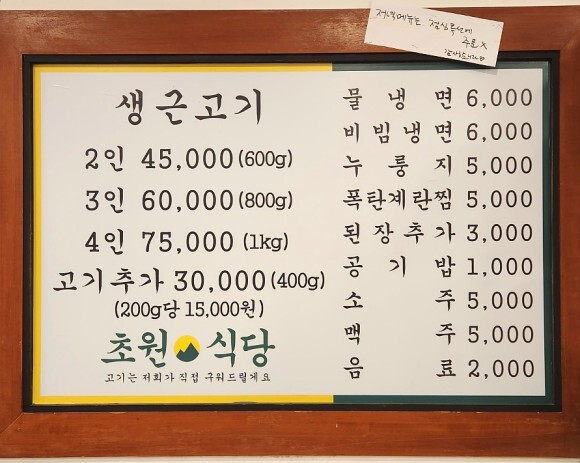 저녁메뉴는 점심특선에
주문X
생근고기
2인 45,000(600g)
3인 60,000(800g)
4인 75,000(1kg)
고기추가 30,000(400g)
(200g당 15,000원)
초원 식당
고기는 저희가 직접 구워드릴게요
물냉면 6,000
비빔냉면 6,000
누룽지 5,000
폭탄계란찜 5,000
된장추가 3,000
공기밥 1,000
소주 5,000
맥주 5,000
음료 2,000